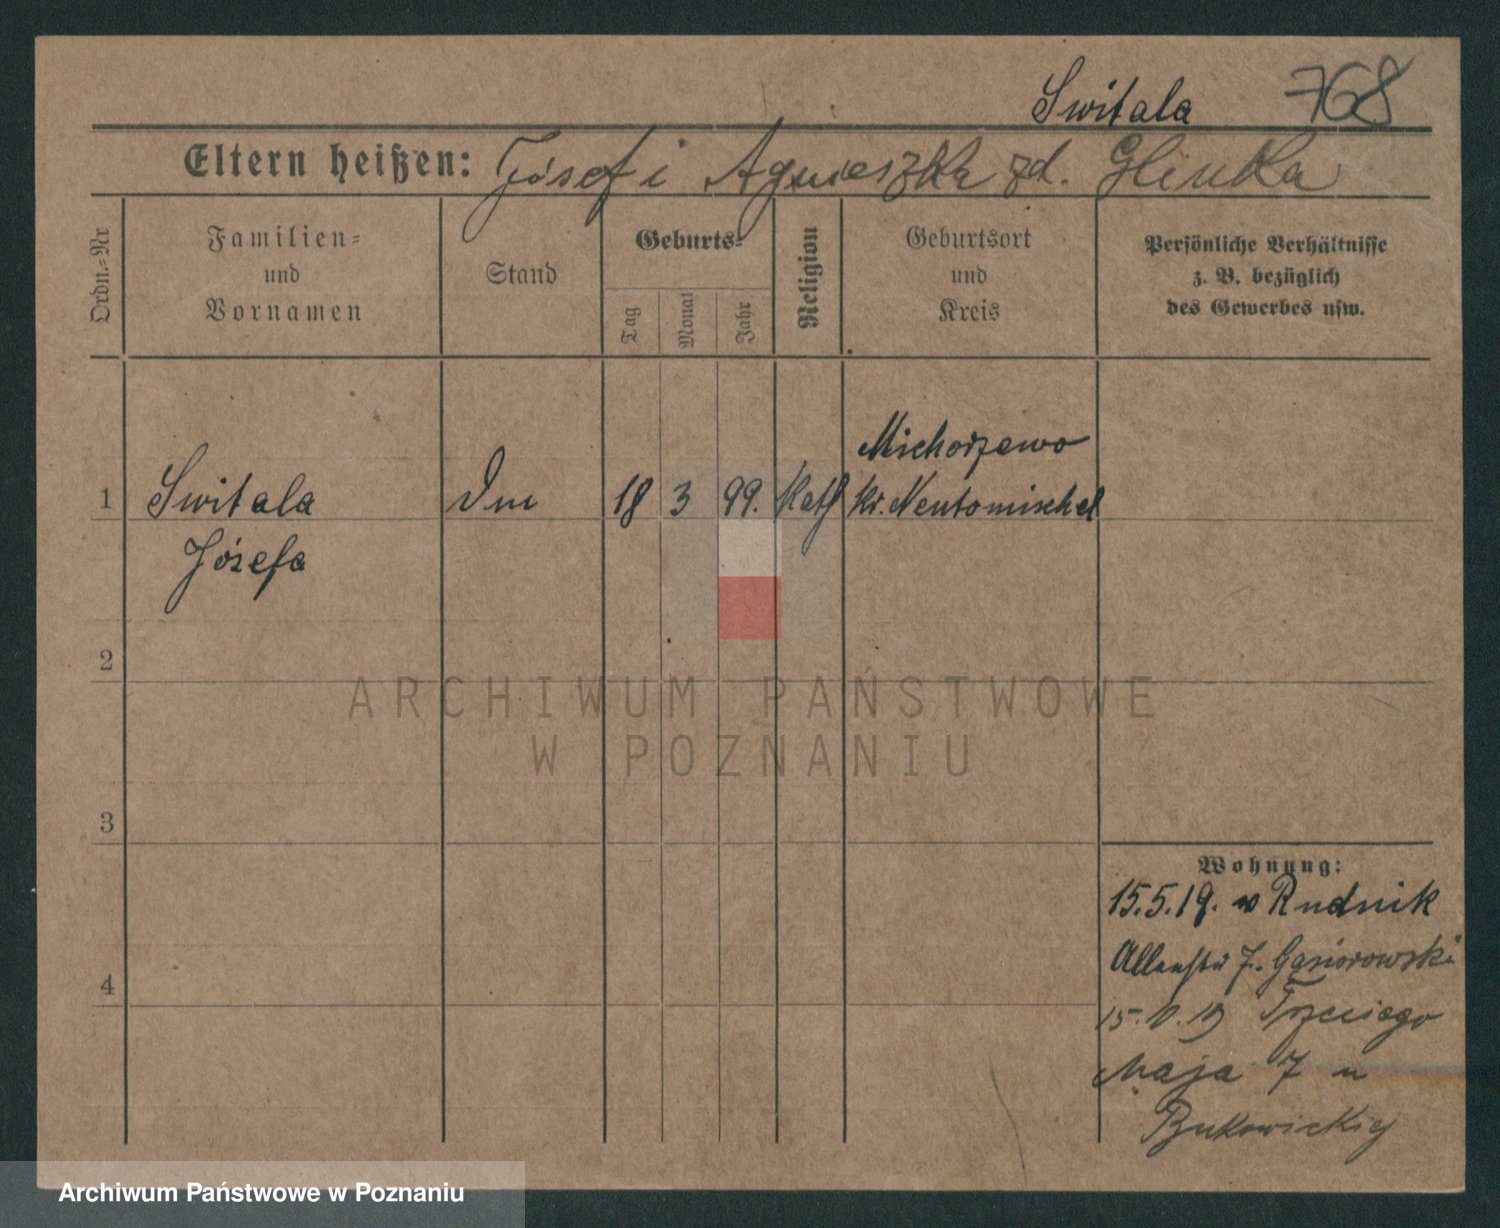 Switala 768
Eltern heißen: Józef i Agnieszka zd. Glinka
Ordn.-Nr
Familien-
und
Vornamen
Stand
Geburts-
Tag
Monat
Jahr
Religion
Geburtsort
und
Kreis
Persönliche Verhältnisse
z. B. bezüglich
des Gewerbes usw.
Michorzewo
1 Switala 18 3 99. Kath Kr. Neutomischel
Józefa
2
ARCHIWUM PAŃSTWOWE
W POZNANIU
3
Wohnung:
15.5.19. Rudnik
7. Gąsiorowski
4
Trzeciego
Maja 7 u
Bukowickiej
Archiwum Państwowe w Poznaniu